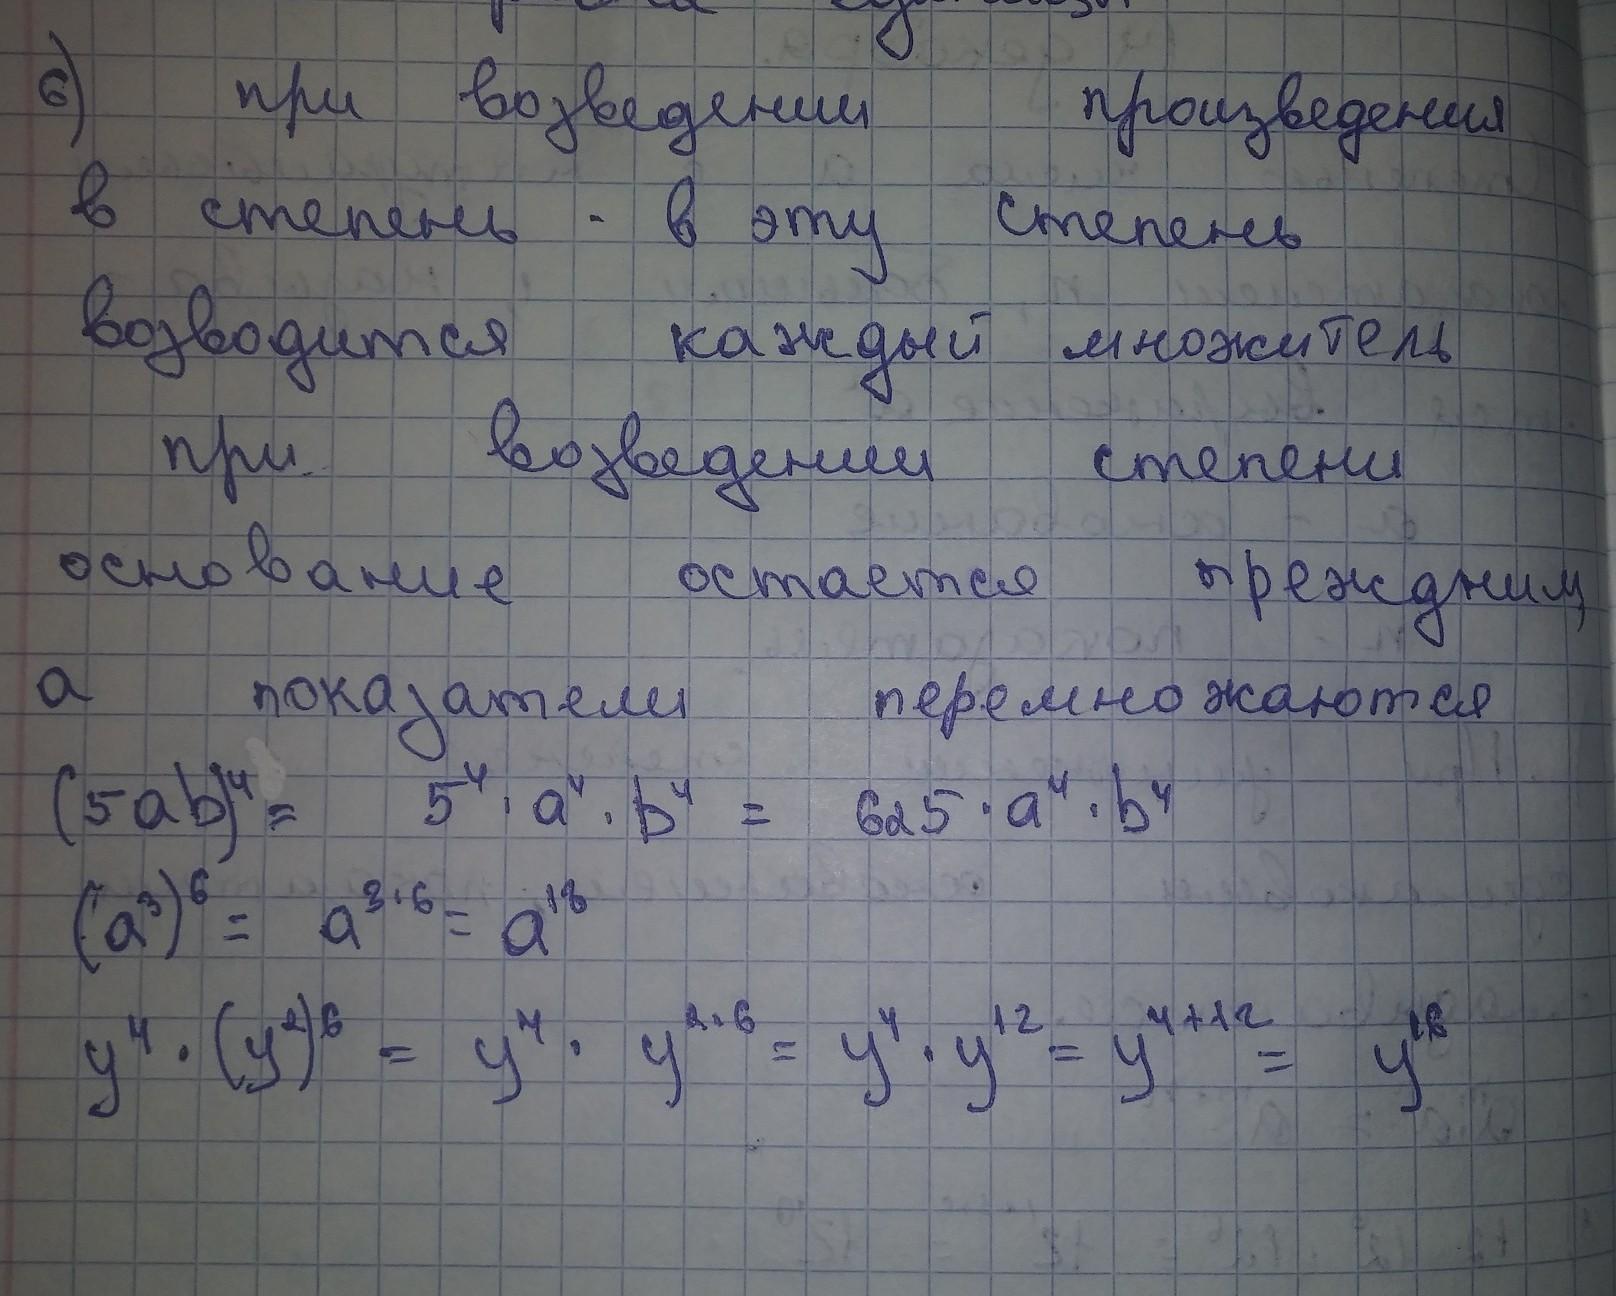 6) при возведении произведения
в степень - в эту степень
возводится каждый множитель
при возведении степени
основание остается преждним,
а показатели перемножаются
(5ab)⁴ = 5⁴ · a⁴ · b⁴ = 625 · a⁴ · b⁴
(a³)⁶ = a³·⁶ = a¹⁸
y⁴ · (y²)⁶ = y⁴ · y²·⁶ = y⁴ · y¹² = y⁴⁺¹² = y¹⁶